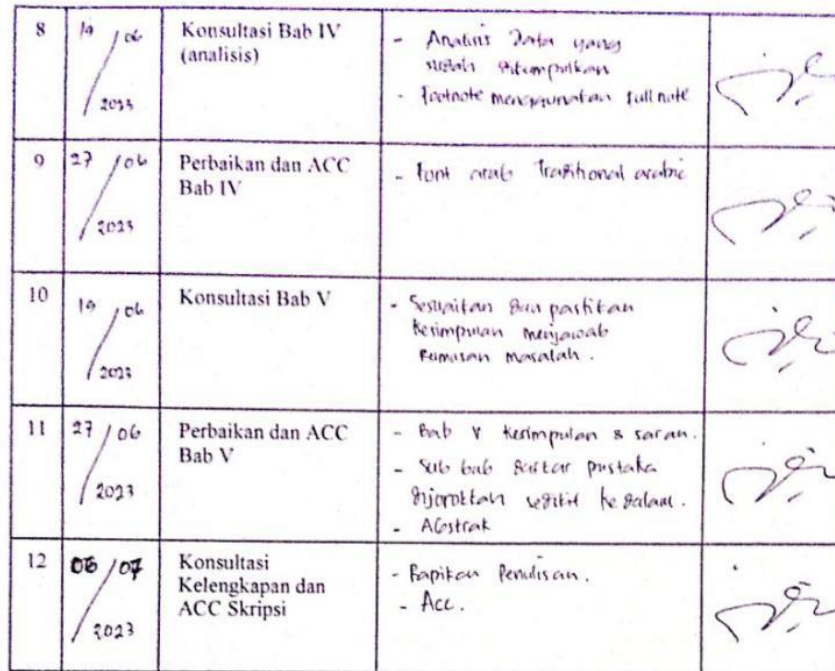 8
19/06/2023
Konsultasi Bab IV
(analisis)
- Analisis Data yang
sudah ditumpulkan
- Footnote menggunakan full note
9
27/06/2023
Perbaikan dan ACC
Bab IV
- Font arab Traditional arabic
10
19/06/2023
Konsultasi Bab V
- Sesuaikan dan pastikan
kesimpulan menjawab
Rumusan masalah.
11
27/06/2023
Perbaikan dan ACC
Bab V
- Bab V kesimpulan & saran.
- Sub bab daftar pustaka
dijorokkan sedikit ke dalam.
- Abstrak
12
06/07/2023
Konsultasi
Kelengkapan dan
ACC Skripsi
- Rapikan Penulisan.
- Acc.